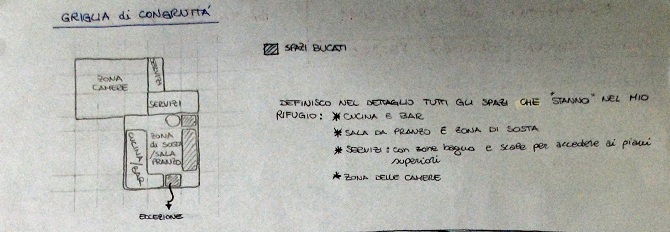 GRIGLIA di CONGRUITÁ
SPAZI BUCATI
ZONA
CAMERE
SERVIZI
SERVIZI
CUCINA/BAR
ZONA
di SOSTA
/SALA
PRANZO
ECCEZIONE
DEFINISCO NEL DETTAGLIO TUTTI GLI SPAZI CHE "STANNO" NEL MIO
RIFUGIO: * CUCINA E BAR
* SALA DA PRANZO E ZONA DI SOSTA
* SERVIZI: con zone bagno e scale per accedere ai piani
superiori
* ZONA DELLE CAMERE